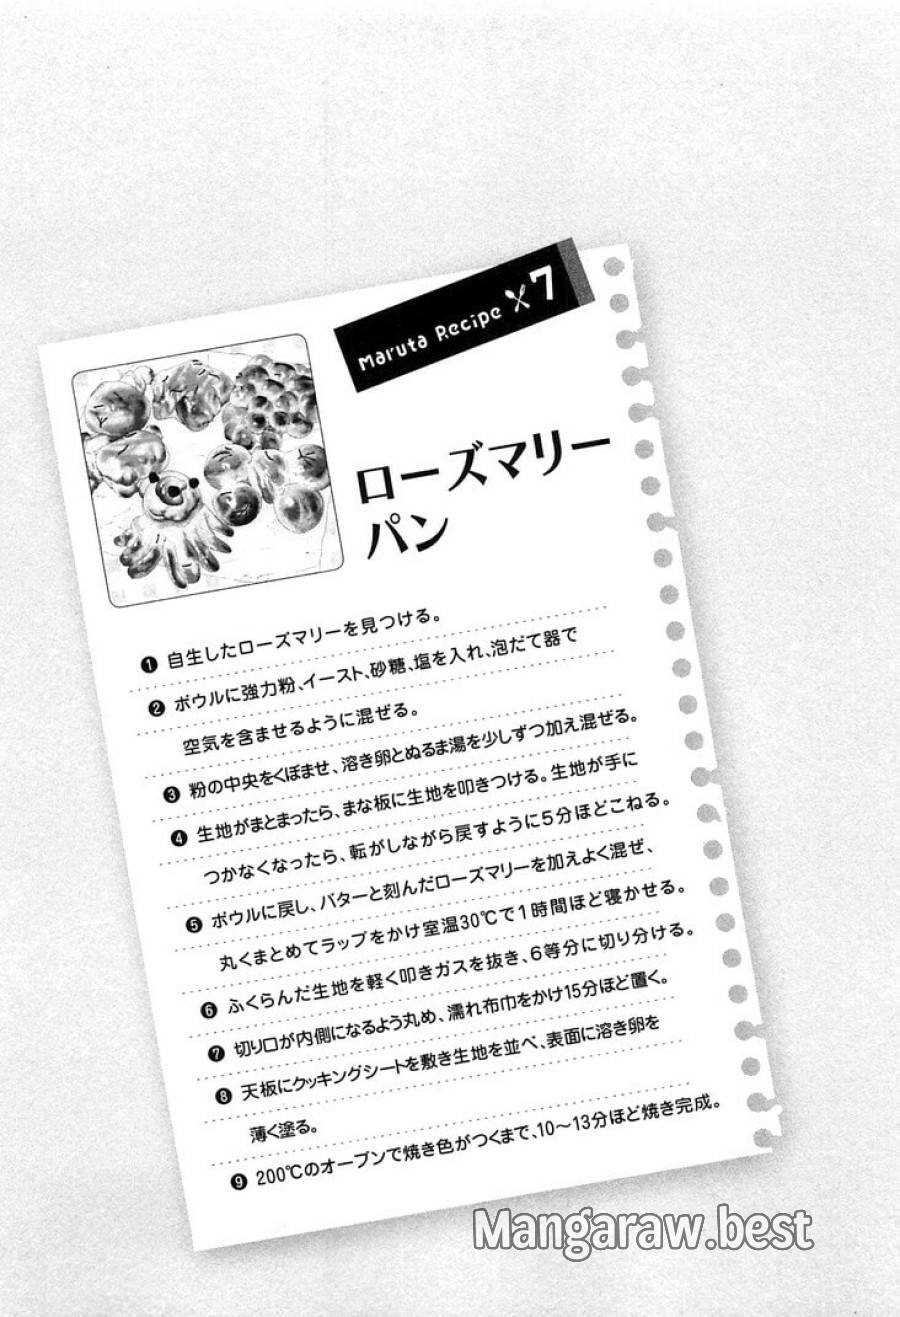 Maruta Recipe 7
ローズマリー
パン
❶ 自生したローズマリーを見つける。
❷ ボウルに強力粉、イースト、砂糖、塩を入れ、泡だて器で
空気を含ませるように混ぜる。
❸ 粉の中央をくぼませ、溶き卵とぬるま湯を少しずつ加え混ぜる。
❹ 生地がまとまったら、まな板に生地を叩きつける。生地が手に
つかなくなったら、転がしながら戻すように5分ほどこねる。
❺ ボウルに戻し、バターと刻んだローズマリーを加えよく混ぜ、
丸くまとめてラップをかけ室温30℃で1時間ほど寝かせる。
❻ ふくらんだ生地を軽く叩きガスを抜き、6等分に切り分ける。
❼ 切り口が内側になるよう丸め、濡れ布巾をかけ15分ほど置く。
❽ 天板にクッキングシートを敷き生地を並べ、表面に溶き卵を
薄く塗る。
❾ 200℃のオーブンで焼き色がつくまで、10～13分ほど焼き完成。
Mangaraw.best